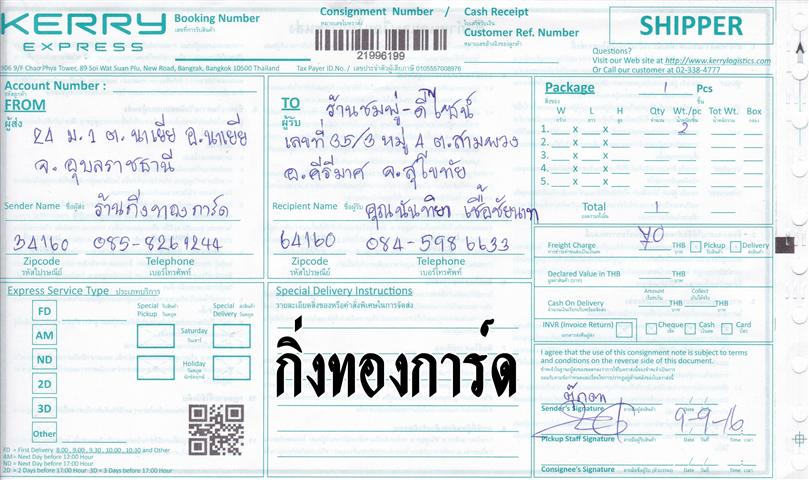 KERRY
EXPRESS
Booking Number
เลขที่การรับสินค้า
Consignment Number /
หมายเลขใบตราส่ง
21996199
Cash Receipt
ใบเสร็จรับเงิน
Customer Ref. Number
หมายเลขอ้างอิงของลูกค้า
SHIPPER
Questions?
Visit our Web site at http://www.kerrylogistics.com
Or Call our customer at 02-338-4777
906 9/F ChaoPhya Tower, 89 Soi Wat Suan Plu, New Road, Bangrak, Bangkok 10500 Thailand
Tax Payer ID.No. / เลขประจำตัวผู้เสียภาษี 0105557008976
Account Number :
รหัสลูกค้า
FROM
ผู้ส่ง
24 ม.1 ต.นาเยีย อ.นาเยีย
จ.อุบลราชธานี
Sender Name ชื่อผู้ส่ง ร้านกิ่งทองการ์ด
34160 085-8261244
Zipcode Telephone
รหัสไปรษณีย์ เบอร์โทรศัพท์
TO
ผู้รับ
ร้านชมพู่-ดีไซน์
เลขที่ 35/3 หมู่ 4 ต.สามพวง
อ.คีรีมาศ จ.สุโขทัย
Recipient Name ชื่อผู้รับ คุณนันทิยา เชื้อชัยนาท
64160 084-5986633
Zipcode Telephone
รหัสไปรษณีย์ เบอร์โทรศัพท์
Package 1 Pcs
สิ่งของ ชิ้น
W L H Qty Wt./pc Tot Wt. Box
กว้าง ยาว สูง จำนวน
1. x x 2
2. x x
3. x x
4. x x
5. x x
Total 1
Freight Charge 70 THB Pickup Delivery
Declared Value in THB THB
Amount Collect
Cash On Delivery THB THB
INVR (Invoice Return) Cheque Cash Card
I agree that the use of this consignment note is subject to terms
and conditions on the reverse side of this document.
Sender's Signature
Date Time
9-9-16
Pickup Staff Signature
Date Time
Consignee's Signature
Date Time
Express Service Type ประเภทบริการ
FD
AM
ND
2D
3D
Other
Special Pickup
Special Delivery
Saturday
วันเสาร์
Holiday
วันหยุดนักขัตฤกษ์
FD = First Delivery 8.00 , 9.00 , 9.30 , 10.00 , 10.30 and Other
AM= Next Day before 12:00 Hour
ND = Next Day before 17:00 Hour
2D = 2 Days before 17:00 Hour 3D = 3 Days before 17:00 Hour
Special Delivery Instructions
รายละเอียดสิ่งของหรือคำสั่งพิเศษในการจัดส่ง
กิ่งทองการ์ด